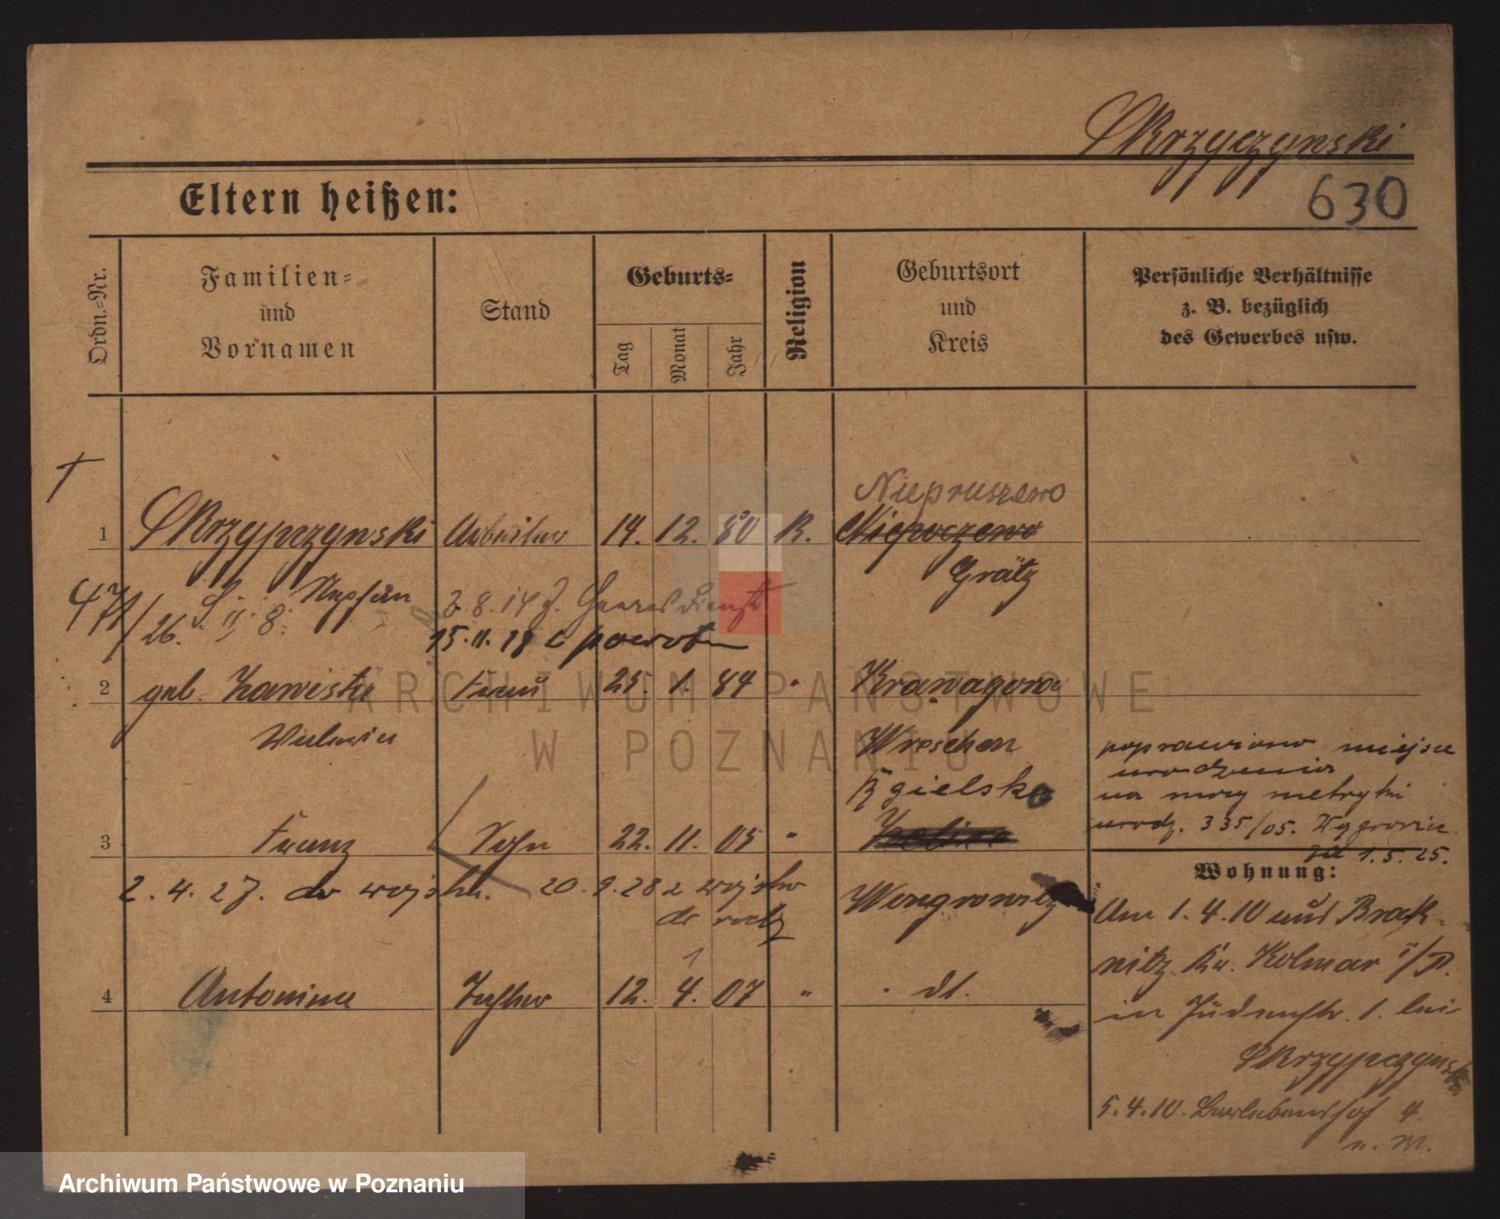 Skrzypczynski
630
Eltern heißen:
Ordn.-Nr.
Familien-
und
Vornamen
Stand
Geburts-
Tag
Monat
Jahr
Religion
Geburtsort
und
Kreis
Persönliche Verhältnisse
z. B. bezüglich
des Gewerbes usw.
†
Niepruszewo
1 Skrzypczynski Arbeiter 14. 12. 80 K.
Grätz
26. 8. Stephan 3.8.14 z. Heeresdienst
15.11.18 powrot
2 geb. Frau 25. 1. 84 "
Wreschen
poprawiono miejsce
urodzenia
Kgielsko
na mocy metryki
3 Franz Sohn 22. 11. 05 "
urodz. 335/05. Wągrowiec
1.5.25.
Wohnung:
2.4.27. do wojska. 20.9.28 z wojska
Wongrowitz
Am 1.4.10 aus
Kr. Kolmar i/P.
4 Antonina Tochter 12. 4. 07 " dt.
in Judenstr. 1. bei
Skrzypczynski
5.4.10. 4.
n. M.
ARCHIWUM PAŃSTWOWE
W POZNANIU
Archiwum Państwowe w Poznaniu